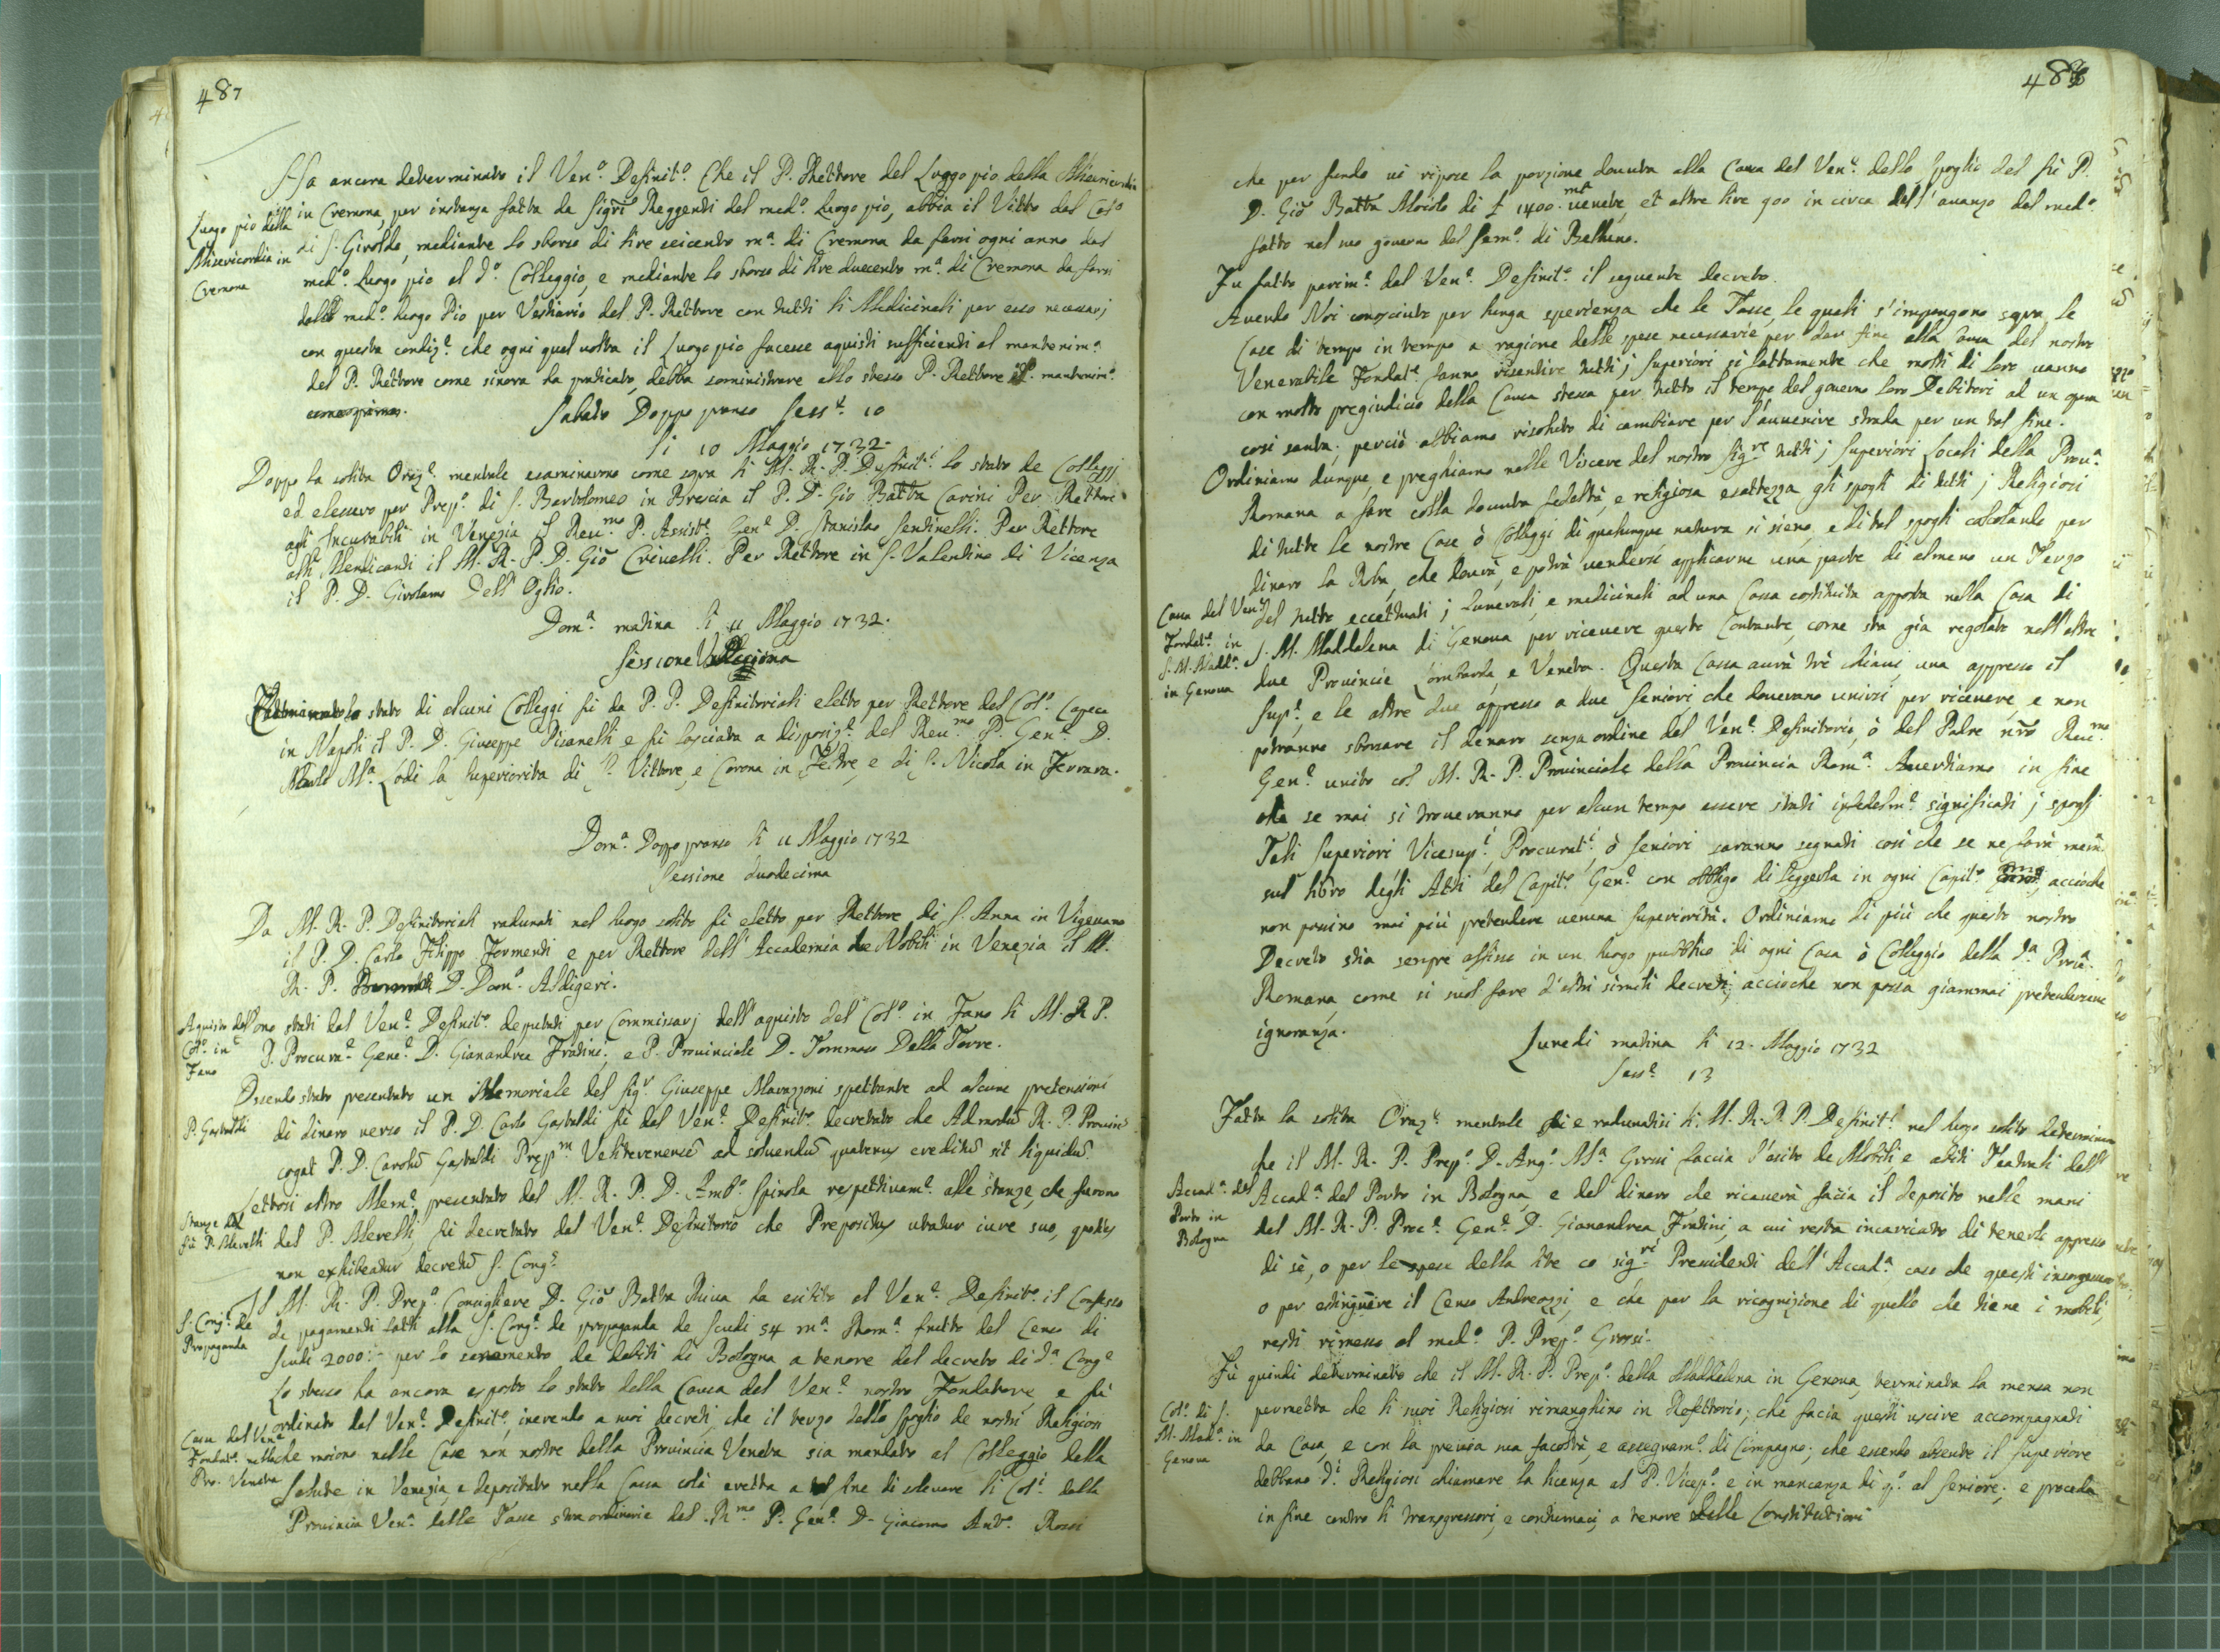 487
Ha ancora determinato il Ven.e Definit.o Che il P. Rettore del Luogo pio della Misericordia
Luogo pio della
Misericordia in
Cremona
in Cremona, per instanza fatta da Sig.ri Reggenti del med.o Luogo pio, abbia il Vitto dal Col.o
di S. Giroldo, mediante lo sborso di lire seicento m.a di Cremona da farsi ogni anno dal
med.o Luogo pio al d.o Colleggio, e mediante lo sborso di lire duecento m.a di Cremona da farsi
dallo med.o luogo Pio per Vestiario del P. Rettore con tutti li Medicinali per esso necessarj
con questa condiz.e che ogni qual volta il Luogo pio facesse aquisti sufficienti al mantenim.o
del P. Rettore come sinora ha praticato, debba somministrare allo stesso P. Rettore il mantenim.o
Sabato Doppo pranso Sess.e 10
li 10 Maggio 1732.
Doppo la solita Oraz.e mentale esaminarono come sopra li M. R. P. Definit.i lo stato de Colleggj
ed elessero per Prep.o di S. Bartolomeo in Brescia il P. D. Gio Batta Carini Per Rettore
agli Incurabili in Venezia il Reu.mo P. Assist.e Gen.e D. Stanislao Santinelli. Per Rettore
alli Mendicanti il M. R. P. D. Gio Crivelli. Per Rettore in S. Valentino di Vicenza
il P. D. Girolamo Dell' Oglio.
Dom.a matina li 11 Maggio 1732.
Sessione Undecima
lo stato di alcuni Colleggi fù da P. P. Definitoriali eletto per Rettore del Col.o Capece
in Napoli il P. D. Giuseppe Pisanelli e fù lasciata a disposiz.e del Reu.mo P. Gen.e D.
M.a Lodi la superiorità di S. Vittore, e Corona in Feltre, e di S. Nicola in Ferrara.
Dom.a Doppo pranso li 11 Maggio 1732
Sessione duodecima
Da M. R. P. Definitoriali radunati nel luogo solito fù eletto per Rettore di S. Anna in Vigevano
il P. D. Carlo Filippo Formenti e per Rettore dell' Accademia de Nobili in Venezia il M.
R. P. D. Dom.o Aldigeri.
Aquisto del
Col.o in
Fano
Sono stati dal Ven.e Definit.o deputati per Commissarj dell' aquisto del Col.o in Fano li M. R. P.
P. Procura.e Gene.e D. Gianandrea Fradini; e P. Provinciale D. Tommaso Della Torre.
Essendo stato presentato un Memoriale del Sig.r Giuseppe Mavazzoni spettante ad alcune pretensioni
P. Gastaldi
di dinaro verso il P. D. Carlo Gastaldi fù dal Ven.e Definit.o decretato che Admodũ R. P. Provinc.
cogat P. D. Carolũ Gastaldi Prep.m Velitrenensẽ ad solvendũ quatenus creditũ sit liquidũ.
Lettosi altro Mem.e presentato dal M. R. P. D. Amb.o Spinola respettivam.e alle stanze, che furono
Stanze del
fù P. Merelli
del P. Merelli, fù decretato dal Ven.e Definitorio che Prepositus utatur iure suo, quatenus
non exhibeatur decretũ S. Cong.e
Il M. R. P. Prep.o Consigliere D. Gio Batta Riva ha esibito al Ven.e Definit.o il Confesso
S. Cong.e de
Propaganda
de pagamenti fatti alla S. Cong.e de propaganda de Scudi 54 m.a Rom.a frutto del Censo di
Scudi 2000 per lo scemamento de debiti di Bologna a tenore del decreto di d.a Cong.e
Lo stesso ha ancora esposto lo stato della Causa del Ven.e nostro Fondatore e fù
Causa del Ven.e
Fondat.e nella
Pro. Veneta
ordinato dal Ven.e Definit.o, inerendo a suoi decreti, che il terzo dello Spoglio de nostri Religiosi
che moiono nelle Case non nostre della Provincia Veneta sia mandato al Colleggio della
Salute in Venezia, e depositato nella Cassa colà eretta a tal fine di solevare li Col.i della
Provincia Ven.a dalle Tasse straordinarie dal R.mo P. Gen.e D. Giacomo Ant.o Rossi
488
che per fondo vi ripose la porzione dovuta alla Causa del Ven.e dello spoglio del fù P.
D. Gio Batta Alcaini di £ 1400 m.a venete, et altre lire 900 in circa dell' avanzo dal med.o
fatto nel suo governo del Sem.o di Belluno.
Fu fatto parim.e dal Ven.e Definit.o il seguente decreto.
Avendo Noi conosciuto per lunga sperienza che le Tasse, le quali s' impongono sopra le
Case di tempo in tempo a ragione delle spese necessarie per dar fine alla Causa del nostro
Venerabile Fondat.e fanno risentire tutti j Superiori sì fattamente che molti di loro vanno
con molto pregiudicio della Causa stessa per tutto il tempo del governo loro Debitori ad un opera
così santa; perciò abbiamo risoluto di cambiare per l'avvenire strada per un tal fine.
Ordiniamo dunque, e preghiamo nelle Viscere del nostro Sig.re tutti j Superiori Locali della Prou.a
Romana a fare colla dovuta fedeltà, e religiosa esattezza gli spogli di tutti j Religiosi
di tutte le nostre Case ò Colleggi di qualunque natura si sieno, e di tal spogli calcolando per
dinaro la Roba, che dovrà, e potrà vendersi applicarne una parte di almeno un Terzo
Causa del Ven.e
Fondat.e in
S. M. Madd.a
in Genova
del tutto eccettuati j funerali, e medicinali ad una Cassa costituita apposta nella Casa di
S. M. Maddalena di Genova per ricevere questo Contante, come sta già regolato nell' altre
due Provincie Lombarda, e Veneta. Questa Cassa avrà trè chiavi, una appresso il
Sup.e, e le altre due appresso a due Seniori che doveranno unirsi per ricevere, e non
potranno sborsare il denaro senza ordine del Ven.e Definitorio, ò del Padre ñro Reu.mo
Gen.e unito col M. R. P. Provinciale della Provincia Rom.a Avertiamo in fine
che se mai si troveranno per alcun tempo essere stati infedelm.e significati j spogli
Tali Superiori Vicesup.i Procurat.i ò Seniori saranno segnati così che se ne farà mem.
sul libro degli Atti del Capit.o Gen.e con obbligo di leggerla in ogni Capit.o acciòche
non possino mai più pretendere veruna superiorità. Ordiniamo di più che questo nostro
Decreto stia sempre affisso in un luogo pubblico di ogni Casa ò Colleggio della d.a Prou.a
Romana, come si suol fare d' altri simili decreti, acciòche non possa giammai pretendersene
ignoranza.
Lunedì matina li 12. Maggio 1732
Sess.e 13
Fatta la solita Oraz.e mentale e radunatisi li M. R. P. P. Definit.i nel luogo solito determinarono
che il M. R. P. Prep.o D. Ang.o M.a Grossi faccia l'esito de Mobili, e abiti Teatrali dell'
Accad.a del
Porto in
Bologna
Accad.a del Porto in Bologna, e del dinaro che ricaverà facia il deposito nelle mani
del M. R. P. Proc.e Gen.e D. Gianandrea Fradini, a cui resta incaricato di tenerlo appresso
di sè, o per le spese della lite co sig.ri Presidenti dell' Accad.a caso che questi insorgessero,
o per estinguere il Censo Andreozzi, e che per la ricognizione di quello che tiene i mobili,
resti rimesso al med.o P. Prep.o Grossi.
Fù quindi determinato che il M. R. P. Prep.o della Maddalena in Genova, terminata la mensa non
Col.o di S.
M. Mad.a in
Genova
permetta che li suoi Religiosi rimanghino in Refettorio; che facia questi uscire accompagnati
da Casa, e con la previa sua facoltà, e assegnam.o di Compagno; che essendo absente il Superiore
debbano d.i Religiosi chiamare la licenza al P. Vicep.o e in mancanza di q.o al Seniore; e proceda
in fine contro li transgressori, e contumaci, a tenore delle Constitutioni